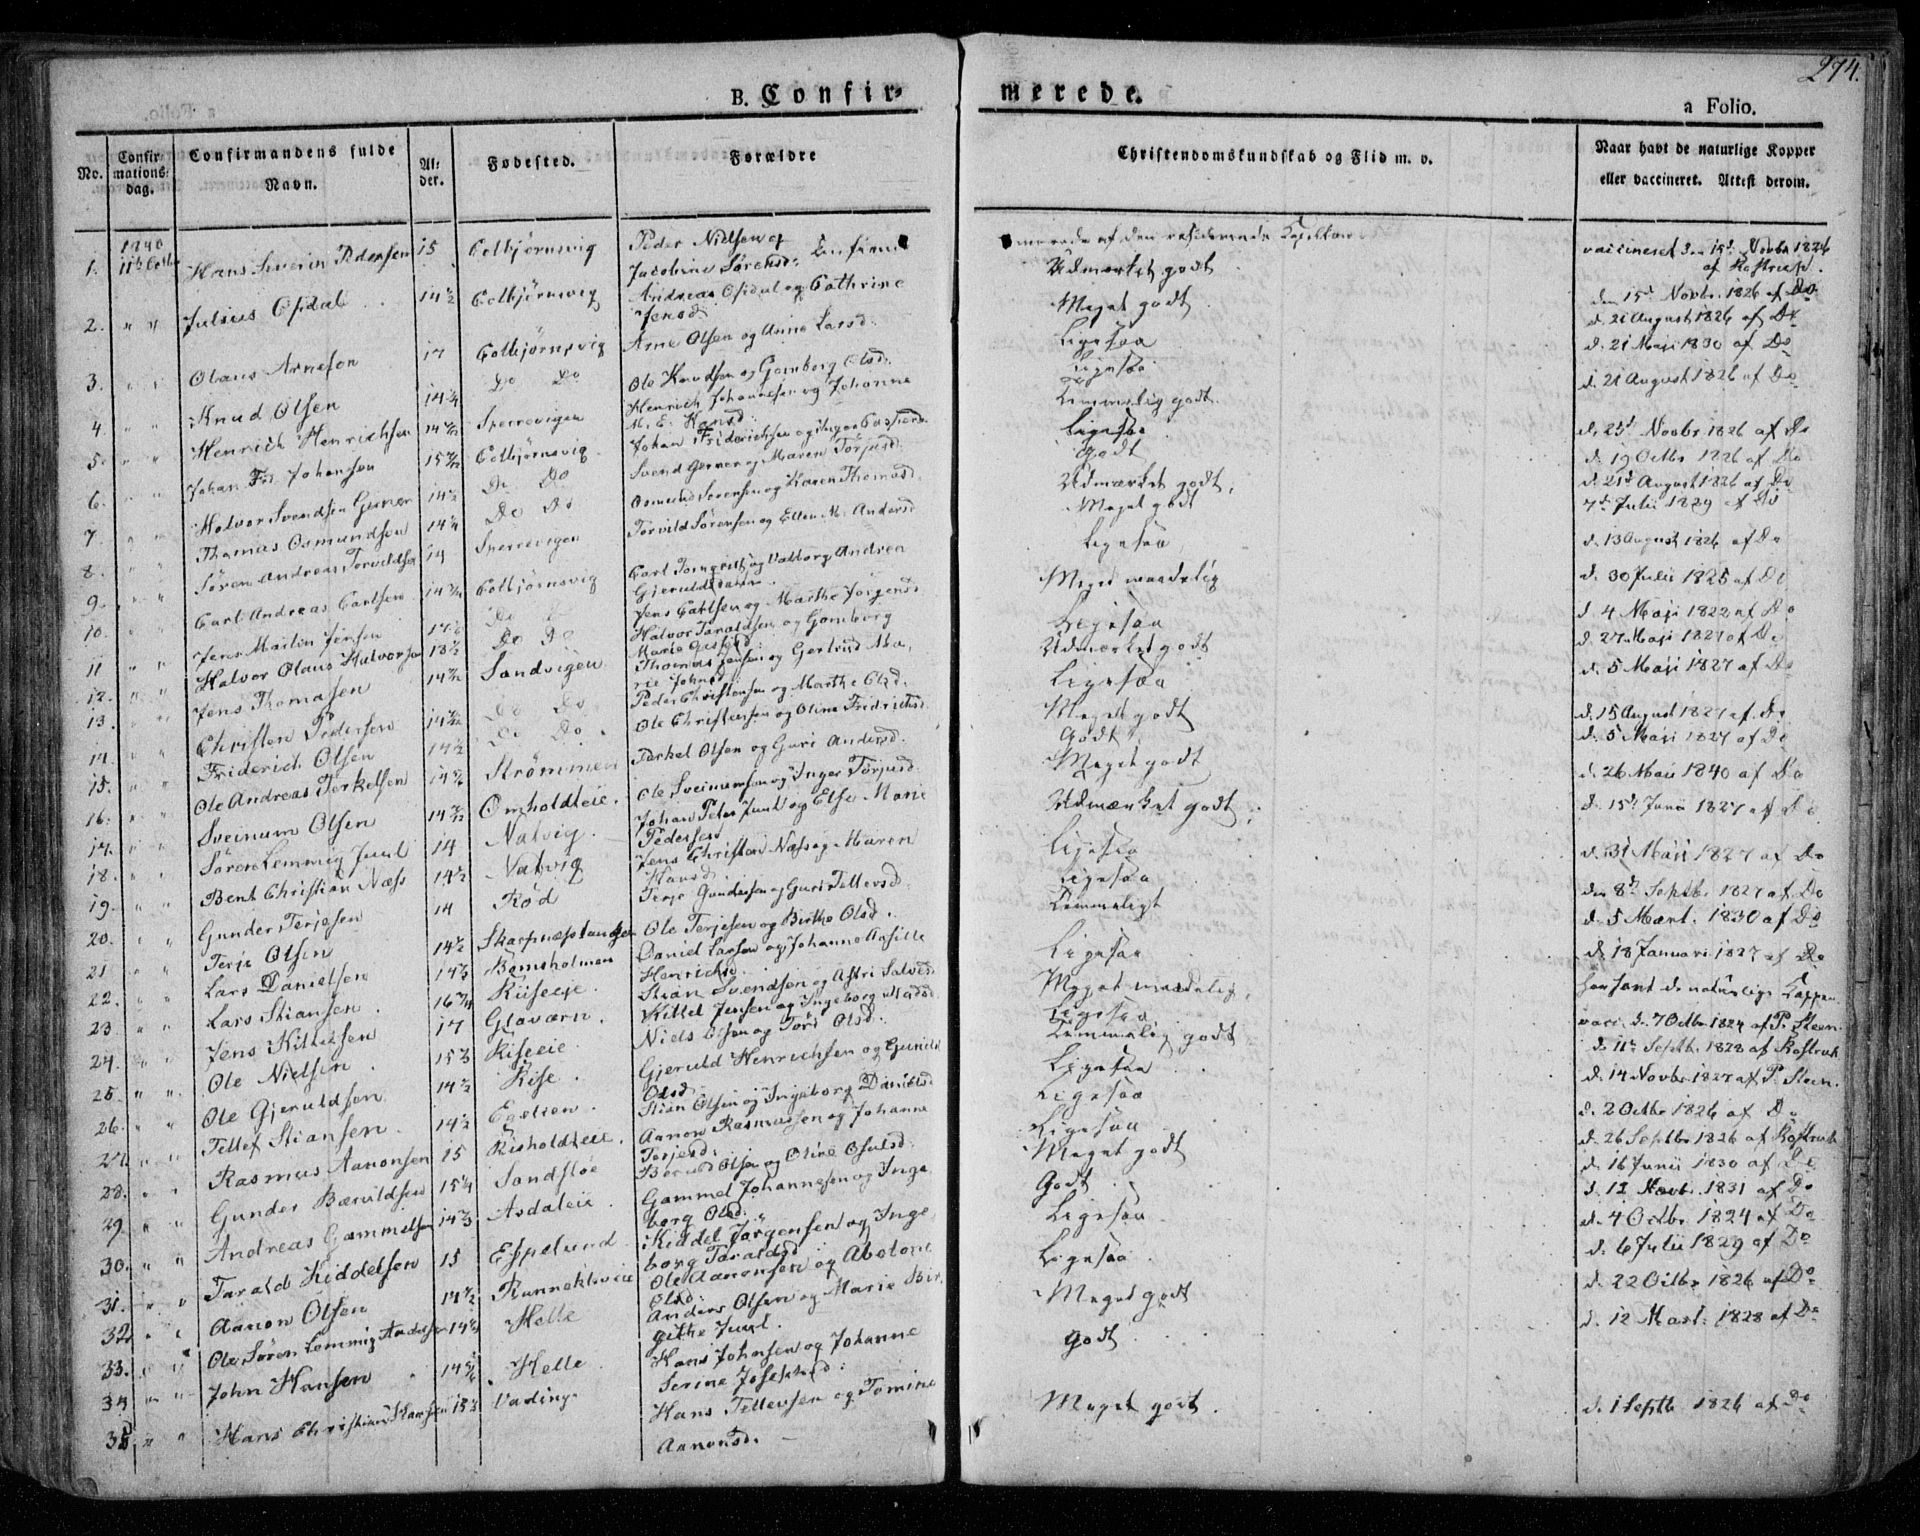 274.
B. Confir-
merede.
a Folio.
No.
Confir-
mations-
dag.
Confirmandens fulde
Navn.
Al-
der.
Fødested.
Forældre
Christendomskundskab og Flid m. v.
Naar havt de naturlige Kopper
eller vaccineret. Attest derom.
1840
merede af den residerende Capellan
1. 11te Octbr Hans Severin Pedersen 15 Colbjørnsvig Peder Nielsen og
Jacobine Sørensd: Udmærket godt. vaccineret den 15d Novbr 1826
af Rostrup.
2. " " Julius Osdal 14½ Colbjørnsvig Andreas Osdal og Cathrine
Jensd: Meget godt. den 15d Novbr. 1826 af Do
3. " " Olaus Arnesen 17 Colbjørnsvig Arne Olsen og Anne Larsd: Ligesaa d. 21 August 1826 af Do
4. " " Knud Olsen 14¼ Do Do Ole Knudsen og Gomborg Olsd: Ligesaa d. 21 Maji 1830 af Do
5. " " Henrich Henrichsen Sperrevigen Henrich Johannesen og Johanne
M. E. Hansd: Temmelig godt. d. 21 August 1826 af Do
6. " " Johan Fr. Johansen Colbjørnsvig Johan Friderichsen og Inger Caspersd Ligesaa d. 25d Novbr 1826 af Do
7. " " Halvor Svendsen Gerner 14½ Do Do Svend Gerner og Maren Torjusd. Godt d. 19 Octbr 1826 af Do
8. " " Thomas Osmundsen 14¼ Do Do Osmund Sørensen og Karen Thomasd. Udmærket godt, d. 21d August 1826 af Do
9. " " Søren Andreas Torvildsen 14 Sperrevigen Torvild Sørensen og Ellen M. Andersd Meget godt 7d Julii 1829 af Do
10. " " Carl Andreas Carlsen Colbjørnsvig Carl og Valborg Andrea
Ligesaa d. 13 August 1826 af Do
11 " " Jens Martin Jensen Do Do Jens Carlsen og Marthe Jörgensd Meget maadelig d. 30 Julii 1825 af Do
12. " " Halvor Olaus Halvorsen 18½ Do Do Halvor Taraldsen og Gomborg
Marie Ligesaa d. 4 Maji 1822 af Do
13. " " Jens Thomasen Sandvigen Thomas Jensen og Gertrud Ma,
rie Johnsd. Udmærket godt d. 27 Maji 1827 af Do
14. " " Christen Pedersen Do Do Peder Christensen og Marthe Olsd. Ligesaa d. 5 Maji 1827 af Do
15. " " Friderich Olsen 14½ Do Do Ole Christensen og Oline Fridrichsd Meget godt d. 15 August 1827 af Do
16. " " Ole Andreas Terkelsen Strömmen Terkel Olsen og Guri Andersd. Godt. d. 5 Maji 1827 af Do
17. " " Sveinum Olsen Omholdteie. Ole Sveinumsen og Inger Torjusd. Meget godt d. 26 Maii 1840 af Do
18. " " Søren Lemmig Juul 14 Natvig Johan Peter Juul og Else Marie
Pedersd Udmærket godt, d. 15d Junii 1827 af Do
19. " " Bent Christian Næss 14½ Natvig Jens Christian Næss og Maren
Hansd. Ligesaa d. 31 Maji 1827 af Do
20. " " Gunder Terjesen 14 Röd Terje Gundersen og Guri Tellevsd. Ligesaa den 8d Septbr 1827 af Do
21 " " Terje Olsen 14½ Skarpnæstangen Ole Terjesen og Birthe Olsd. Temmeligt d. 5 Mart. 1830 af Do
22. " " Lars Danielsen Bomsholmen Daniel Larsen og Johanne Aasille
Henrichsd. Ligesaa d. 18 Januari 1827 af Do
23 " " Lars Stiansen Riiseeie. Stian Svendsen og Astri Salvesd Meget maadelig, har havt de naturlige Kopper.
24. " " Jens Kittelsen 17 Glaværn. Kittel Jensen og Ingeborg Madsd. Ligesaa vacc. d. 7 Octbr 1824 af P. Steen
25. " " Ole Nielsen Riseeie Niels Olsen og Tore Olsd. Temmelig godt d. 11te Septbr 1828 af Rostrup
26. " " Ole Gjeruldsen 14½ Rise. Gjeruld Henrichsen og Gunild
Olsd. Ligesaa d. 14 Novbr 1827 af P. Steen
27 " " Tellef Stiansen. 14½ Egelien. Stian Olsen og Ingeborg Danielsd Ligesaa d. 2 Octbr 1826 af Do
28. " " Rasmus Aanonsen 15 Risholdteie. Aanon Rasmussen og Johanne
Terjesd. Ligesaa d. 26 Septbr 1826 af Rostrup
29 " " Gunder Bæruldsen 15¼ Sandstøe Bæruld Olsen og Oline Osulsd. Meget godt d. 16 Junii 1830 af Do
30. " " Andreas Gammelsen Asdaleie Gammel Johannesen og Inge
borg Olsd. Godt. d. 12 Novbr 1831 af Do
31. " " Tarald Kiddelsen 15 Espelund. Kiddel Jørgensen og Inge
borg Taraldsd Ligesaa d. 4 Octbr 1824 af Do
32 " " Aanon Olsen 14½ Rannekleveie Ole Aanonsen og Abelone
Olsd: Ligesaa d. 6 Julii 1829 af Do
33. " " Ole Søren Lemmig Andersen Helle Anders Olsen og Marie Bir,
githe Juul. Meget godt d. 22 Octbr 1826 af Do
34 " " John Hansen Helle Hans Johnsen og Johanne
Serine Josephsd: Godt d. 12 Mart: 1828 af Do
35 " " Hans Christian Hansen Vading Hans Tellevsen og Tomine
Aanonsd. Meget godt. d. 1 Septbr 1826 af Do